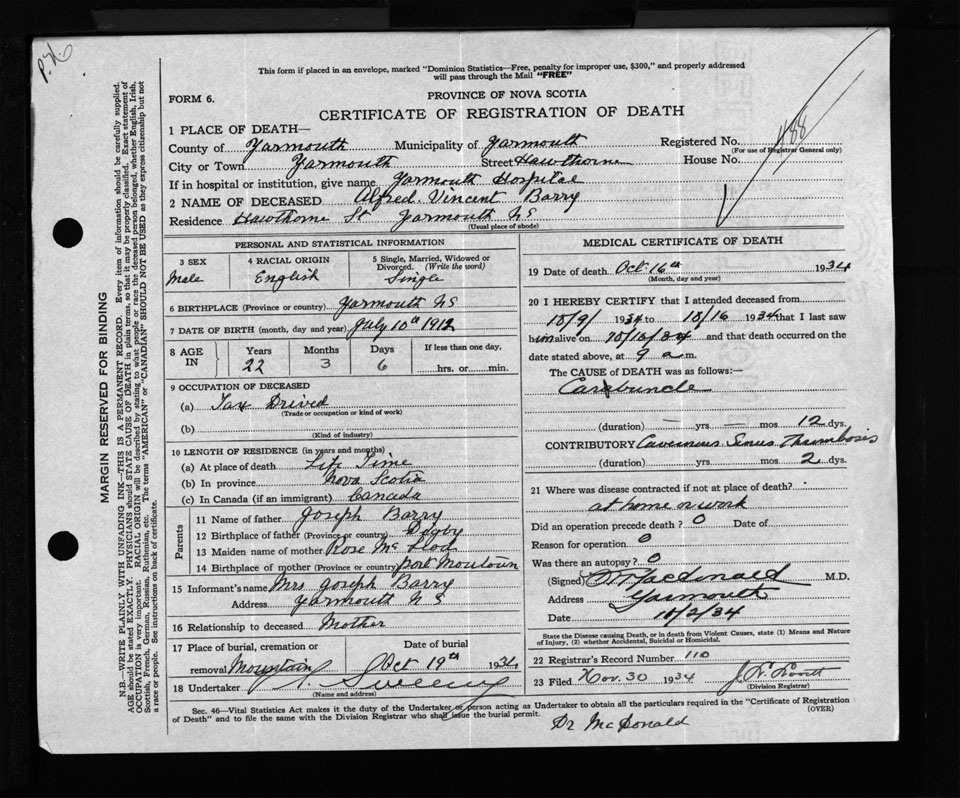 P.H.
This form if placed in an envelope, marked "Dominion Statistics—Free, penalty for improper use, $300," and properly addressed
will pass through the Mail "FREE"
PROVINCE OF NOVA SCOTIA
FORM 6.
CERTIFICATE OF REGISTRATION OF DEATH
1 PLACE OF DEATH—
County of Yarmouth Municipality of Yarmouth Registered No.
(For use of Registrar General only)
City or Town Yarmouth Street Hawthorne House No.
If in hospital or institution, give name Yarmouth Hospital
2 NAME OF DECEASED Alfred Vincent Barry
Residence Hawthorne St Yarmouth NS
(Usual place of abode)
PERSONAL AND STATISTICAL INFORMATION
3 SEX 4 RACIAL ORIGIN 5 Single, Married, Widowed or
Divorced. (Write the word)
Male English Single
6 BIRTHPLACE (Province or country) Yarmouth NS
7 DATE OF BIRTH (month, day and year) July 10th 1912
8 AGE IN Years Months Days If less than one day,
22 3 6 hrs. or min.
9 OCCUPATION OF DECEASED
(a) Tax Drived
(Trade or occupation or kind of work)
(b)
(Kind of industry)
10 LENGTH OF RESIDENCE (in years and months)
(a) At place of death Life Time
(b) In province Nova Scotia
(c) In Canada (if an immigrant) Canada
Parents
11 Name of father Joseph Barry
12 Birthplace of father (Province or country) Digby
13 Maiden name of mother Rose McLeod
14 Birthplace of mother (Province or country) Port Moutoun
15 Informant's name Mrs Joseph Barry
Address Yarmouth NS
16 Relationship to deceased Mother
17 Place of burial, cremation or Date of burial
removal Mountain Oct 19th 1934
18 Undertaker Sweeny
(Name and address)
MEDICAL CERTIFICATE OF DEATH
19 Date of death Oct. 16th 1934
(Month, day and year)
20 I HEREBY CERTIFY that I attended deceased from
10/9/ 1934 to 10/16 1934 that I last saw
him alive on 10/16/34 and that death occurred on
date stated above, at 9 a m.
The CAUSE of DEATH was as follows:—
Carbuncle
(duration) — yrs — mos 12 dys.
CONTRIBUTORY Cavernous Sinus Thrombosis
(duration) yrs mos 2 dys.
21 Where was disease contracted if not at place of death?
at home or work
Did an operation precede death? 0 Date of
Reason for operation 0
Was there an autopsy? 0
(Signed) Macdonald M.D.
Address Yarmouth
Date 10/2/34
State the Disease causing Death, or in death from Violent Causes, state (1) Means and Nature
of Injury, (2) whether Accidental, Suicidal or Homicidal.
22 Registrar's Record Number 110
23 Filed Nov. 30 1934
(Division Registrar)
Sec. 46—Vital Statistics Act makes it the duty of the Undertaker or person acting as Undertaker to obtain all the particulars required in the "Certificate of Registration
of Death" and to file the same with the Division Registrar who shall issue the burial permit. (OVER)
Dr McDonald
MARGIN RESERVED FOR BINDING
N.B.—WRITE PLAINLY WITH UNFADING INK—THIS IS A PERMANENT RECORD. Every item of information should be carefully supplied.
AGE should be stated EXACTLY. PHYSICIANS should STATE CAUSE OF DEATH in plain terms, so that it may be properly classified. Exact statement of
OCCUPATION is very important. RACIAL ORIGIN will be described by stating to what people or race the deceased person belonged, whether English, Irish,
Scottish, French, German, Russian, Ruthenian, etc. The terms "AMERICAN" or "CANADIAN" SHOULD NOT BE USED as they express citizenship but not
a race or people. See instructions on back of certificate.